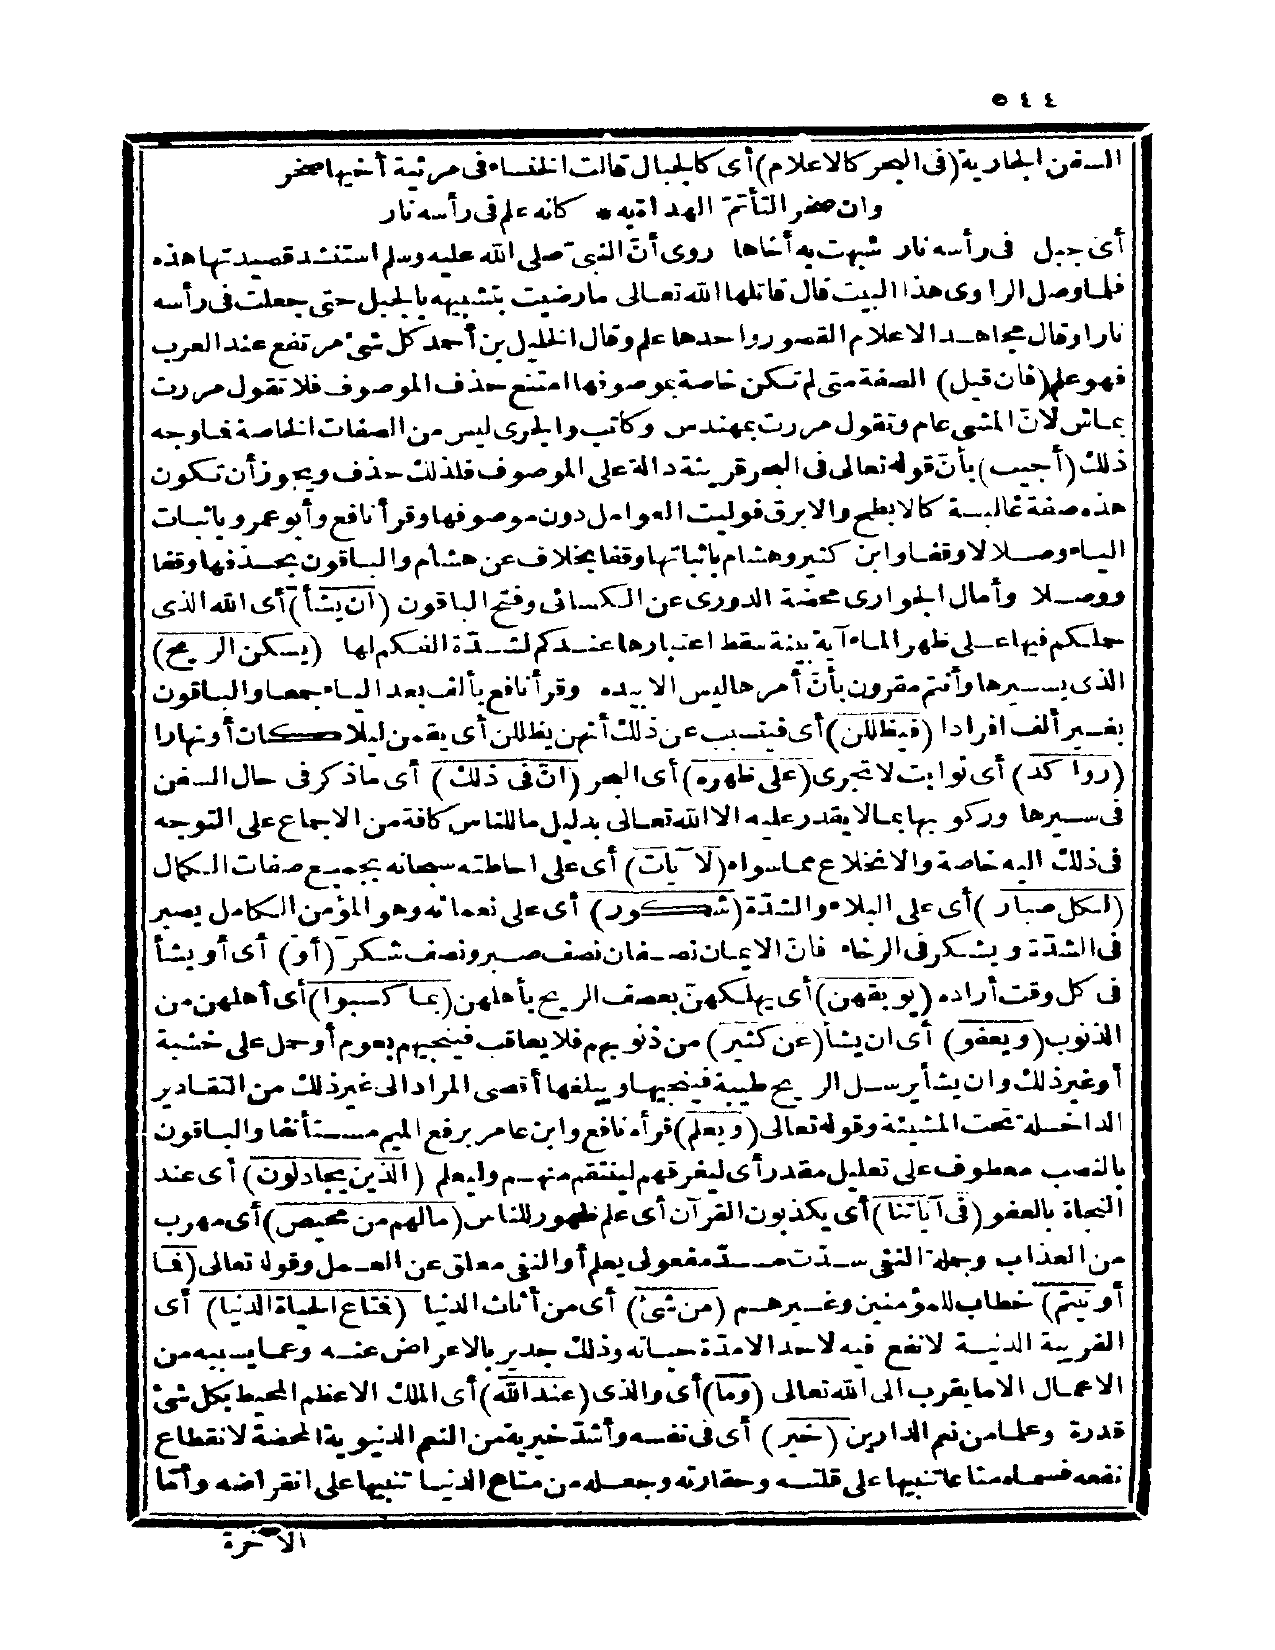 ٥٤٤
السفن الجارية (فى البحر كالاعلام) أى كالجبال قالت الخنساء فى مرثية أخيها صخر
وان صخر التأتم الهداة به * كانه علم فى رأسه نار
أى جبل فى رأسه نار شبهت به أخاها روى أنّ النبىّ صلى الله عليه وسلم استنشد قصيدتها هذه
فلما وصل الراوى هذا البيت قال قاتلها الله تعالى ما رضيت بتشبيهه بالجبل حتى جعلت فى رأسه
نارا وقال مجاهد الاعلام القصور واحدها علم وقال الخليل بن أحمد كل شئ مرتفع عند العرب
فهو علم (فان قيل) الصفة متى لم تكن خاصة بموصوفها امتنع حذف الموصوف فلا تقول مررت
بماش لانّ المشى عام وتقول مررت بمهندس وكاتب والجرى ليس من الصفات الخاصة فما وجه
ذلك (أجيب) بأنّ قوله تعالى فى البحر قرينة دالة على الموصوف فلذلك حذف ويجوز أن تكون
هذه صفة غالبة كالابطح والابرق فوليت العوامل دون موصوفها وقرأ نافع وأبو عمرو باثبات
الياء وصلا لا وقفا وابن كثير وهشام باثباتها وقفا بخلاف عن هشام والباقون بحذفها وقفا
ووصلا وأمال الجوارى محضة الدورى عن الكسائى وفتح الباقون (ان يشأ) أى الله الذى
حملكم فيها على ظهر الماء آية بينة سقط اعتبارها عندكم لشدة الفكم لها (يسكن الريح)
الذى يسيرها وأنتم مقرون بأنّ أمرها ليس الا بيده وقرأ نافع بألف بعد الياء جمعا والباقون
بغير ألف افرادا (فيظللن) أى فيتسبب عن ذلك أنهن يظللن أى يقمن ليلا كان أو نهارا
(رواكد) أى ثوابت لا تجرى (على ظهره) أى البحر (انّ فى ذلك) أى ما ذكر فى حال السفن
فى سيرها وركوبها مما لا يقدر عليه الا الله تعالى بدليل ما للناس كافة من الاجماع على التوجه
فى ذلك اليه خاصة والانخلاع مما سواه (لآيات) أى على احاطته سبحانه بجميع صفات الكمال
(لكل صبار) أى على البلاء والشدّة (شكور) أى على نعمائه وهو المؤمن الكامل يصبر
فى الشدّة ويشكر فى الرخاء فانّ الايمان نصفان نصف صبر ونصف شكر (أو) أى أو يشأ
فى كل وقت أراده (يوبقهن) أى يهلكهنّ بعصف الريح بأهلهن (بما كسبوا) أى أهلهن من
الذنوب (ويعفو) أى ان يشأ (عن كثير) من ذنوبهم فلا يعاقب فينجيهم بعوم أو حمل على خشبة
أو غير ذلك وان يشأ يرسل الريح طيبة فينجيها ويبلغها أقصى المراد الى غير ذلك من التقادير
الداخلة تحت المشيئة وقوله تعالى (ويعلم) قرأه نافع وابن عامر برفع الميم مستأنفا والباقون
بالنصب معطوف على تعليل مقدر أى ليغرقهم لينتقم منهم وليعلم (الذين يجادلون) أى عند
النجاة بالعفو (فى آياتنا) أى يكذبون القرآن أى علم ظهور للناس (مالهم من محيص) أى مهرب
من العذاب وجملة النفى سدّت مسدّ مفعولى يعلم أو النفى معلق عن العمل وقوله تعالى (فما
أوتيتم) خطاب للمؤمنين وغيرهم (من شئ) أى من أثاث الدنيا (فمتاع الحياة الدنيا) أى
القريبة الدنية لا نفع فيه لاحد الا مدّة حياته وذلك جدير بالاعراض عنه وعما يسببه من
الاعمال الا ما يقرب الى الله تعالى (وما) أى والذى (عند الله) أى الملك الاعظم المحيط بكل شئ
قدرة وعلما من نعم الدارين (خير) أى فى نفسه وأشدّ خيرية من النعم الدنيوية المحضة لانقطاع
نفعه فسماه متاعا تنبيها على قلته وحقارته وجعله من متاع الدنيا تنبيها على انقراضه وأمّا
الآخرة